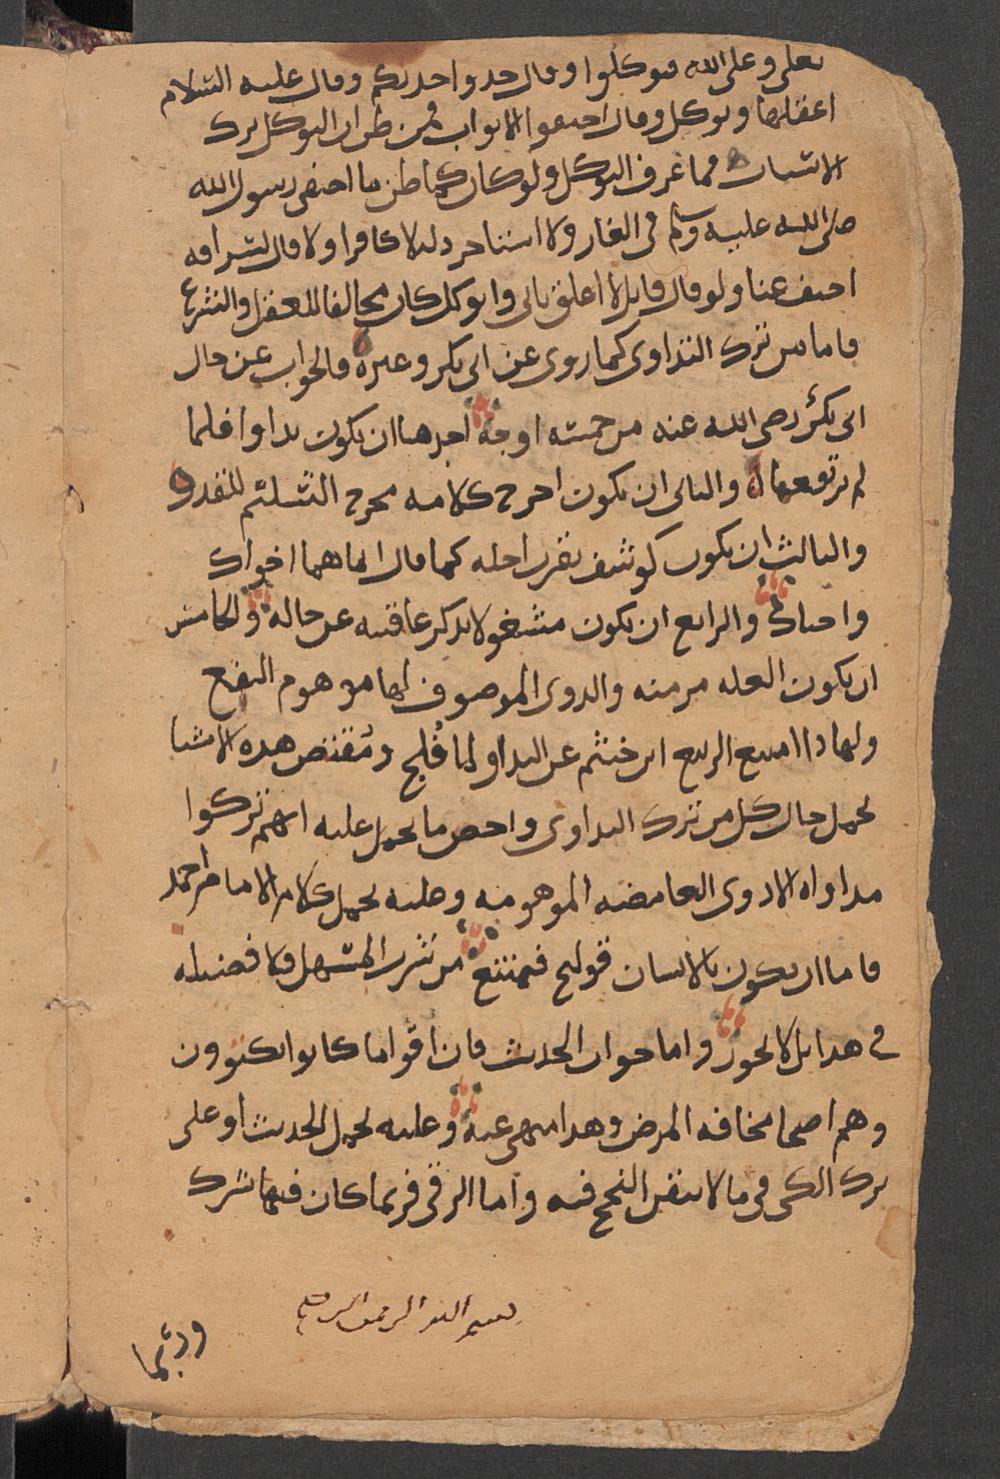 تعلى وعلى الله فتوكلوا وقال خذوا حذركم وقال عليه السلام
اعقلها وتوكل وقال اجيفوا الابواب فمن ظن ان التوكل ترك
الاسباب فما عرف التوكل ولو كان كما ظن ما اختفى رسول الله
صلى الله عليه وسلم في الغار ولا استاجر دليلا كافرا ولا قال لسراقه
اخف عنا ولو قال قايل لا اغلق بابي واتوكل كان مخالفا للعقل والشرع
فاما من ترك التداوى كما روى عن ابي بكر وغيره فالجواب عن حال
ابي بكر رضي الله عنه من خمسة اوجه احدها ان يكون تداوا فلما
لم ير توقعها والثاني ان يكون اخرج كلامه مخرج التسليم للقدر
والثالث ان يكون كوشف بقرب اجله كما قال انما هما اخواك
واختاك والرابع ان يكون مشغولا بذكر عاقبته عن حاله والخامس
ان يكون العله مزمنه والدوى الموصوف لها موهوم النفع
ولهاذا امتنع الربيع ابن خثيم عن التداو لما فلج ومقتضى هذه الاشيا
يحمل حال كل من ترك التداوى واحص ما يحمل عليه انهم تركوا
مداواه الادوى الغامضه الموهومه وعليه يحمل كلام الامام احمد
فاما ان يكون بالانسان قولنج فيمتنع من شرب المسهل فلا فضيله
في هذا بل لا يجوز واما جواب الحديث فان اقواما كانوا يكتوون
وهم اصحا مخافه المرض وهذا منهي عنه وعليه يحمل الحديث او على
ترك الكي في ما لا يتيقن النجح فيه واما الرقى فربما كان فيها شرك
بسم الله الرحمن الرحيم
وربما